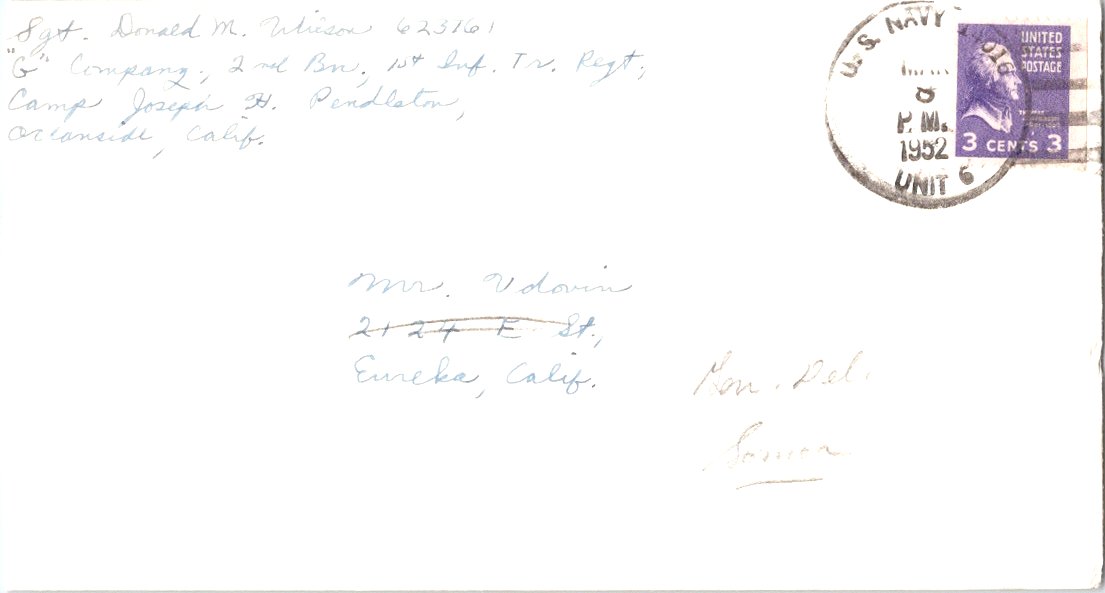 Sgt. Donald M. Wilson 623161
"G" Company, 2nd Bn, 1st Inf. Tr. Regt,
Camp Joseph H. Pendleton,
Oceanside, Calif.
U.S. NAVY
MAR
P.M.
1952
UNIT 6
UNITED
STATES
POSTAGE
3 CENTS 3
Mr. Vdovin
2124 E St.,
Eureka, Calif.
Gen. Del.